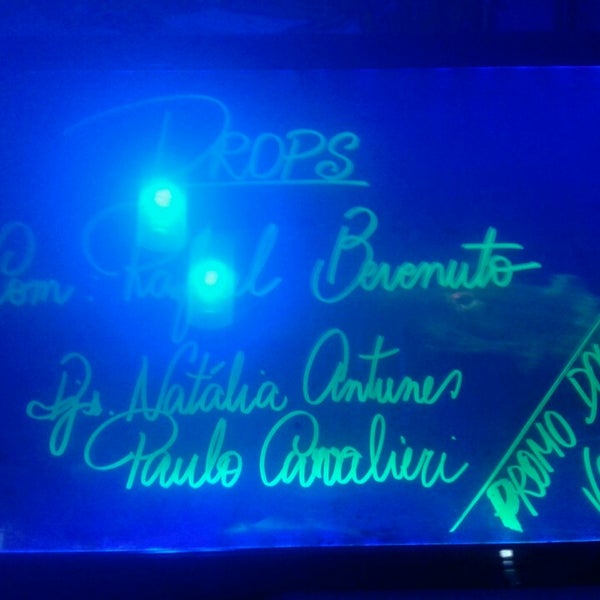 DROPS
Com Rafael Berenuto
Djs. Natália Antunes
Paulo Cavalieri
PROMO